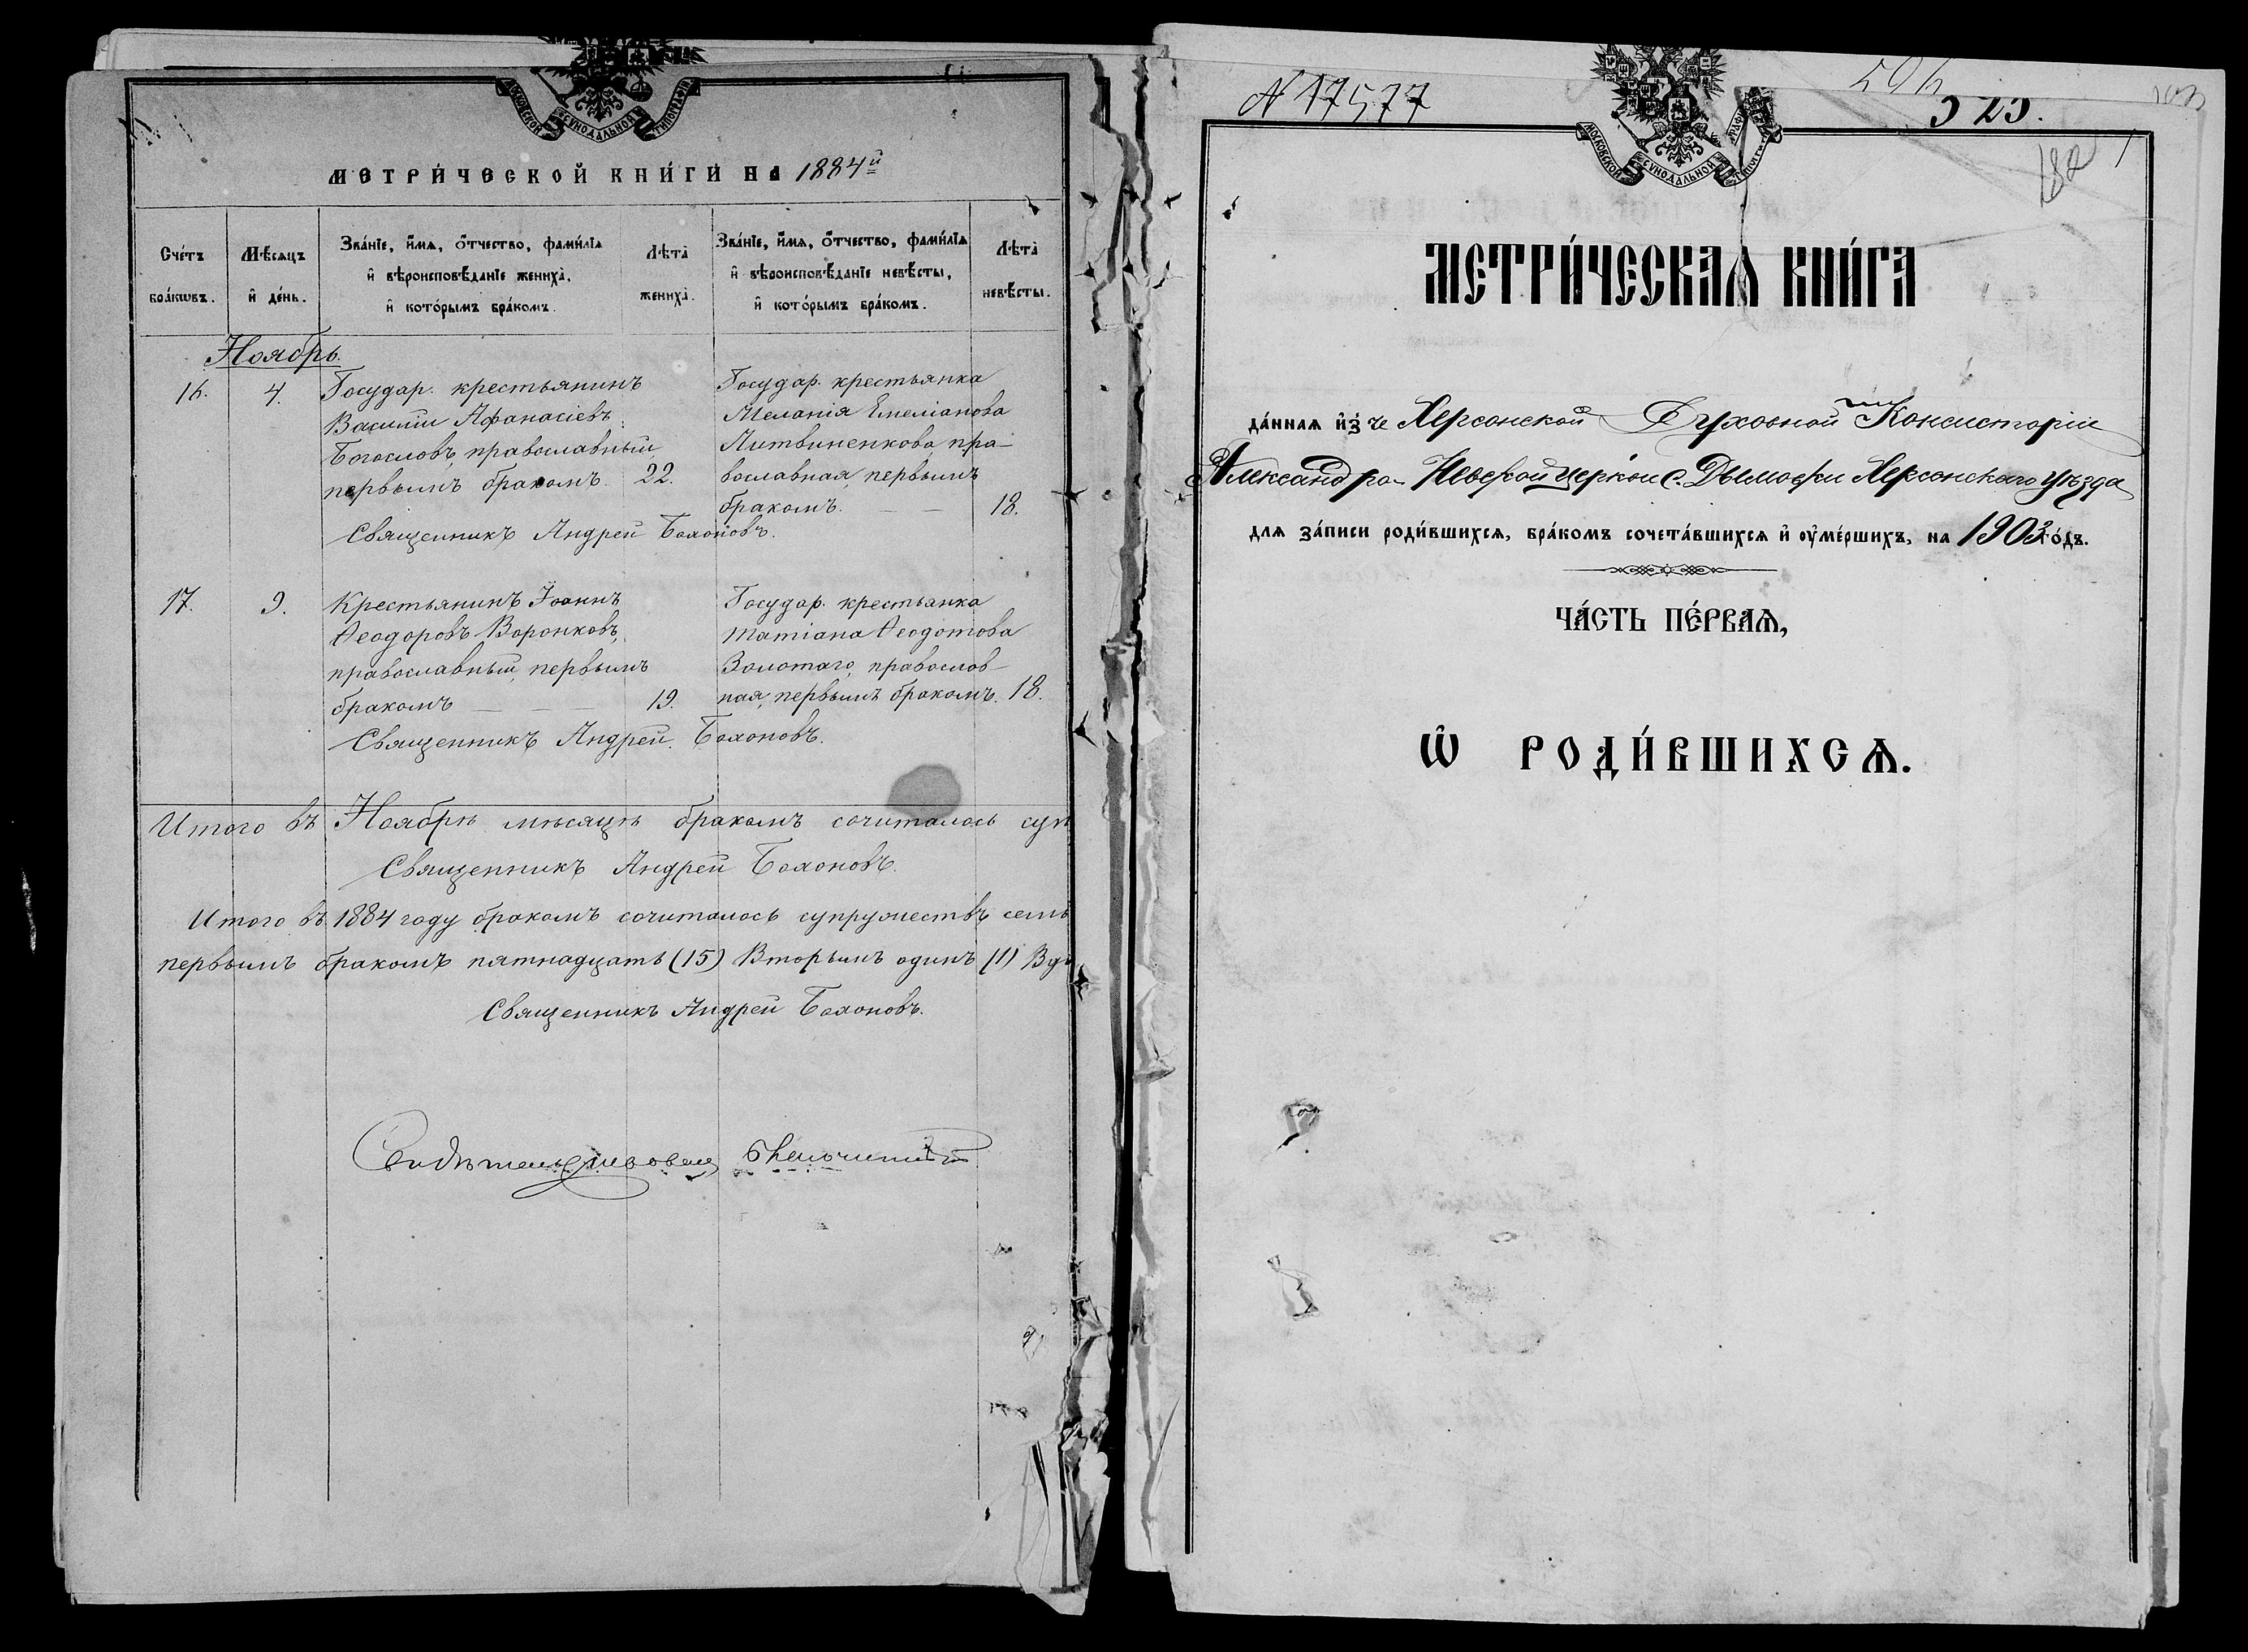 МОСКОВСКОЙ СѴНОДАЛЬНОЙ ТИПОГРАФІИ
МЕТРИ́ЧЕСКОЙ КНИ́ГИ НА 1884й
Сче́тъ бра́кѡвъ.
Мѣ́сяцъ и҆ де́нь.
Зва́нїе, и҆́мя, о҆́тчество, фами́лїя и҆ вѣроисповѣ́данїе жениха̀, и҆ кото́рымъ бра́комъ.
Лѣта̀ жениха̀.
Зва́нїе, и҆́мя, о҆́тчество, фами́лїя и҆ вѣроисповѣ́данїе невѣ́сты, и҆ кото́рымъ бра́комъ.
Лѣта̀ невѣ́сты.
Ноябрь.
16. 4.
Государ. крестьянинъ
Василій Афанасіевъ
Богословъ, православный
первымъ бракомъ. 22.
Государ. крестьянка
Меланія Емеліанова
Литвиненкова, пра-
вославная, первымъ
бракомъ. 18.
Священникъ Андрей Бахоновъ.
17. 9.
Крестьянинъ Іоаннъ
Ѳеодоровъ Воронковъ,
православный, первымъ
бракомъ 19.
Государ. крестьянка
Татіана Ѳеодотова
Золотаго, православ-
ная, первымъ бракомъ. 18.
Священникъ Андрей Бахоновъ.
Итого въ Ноябрѣ мѣсяцѣ бракомъ сочиталось суп
Священникъ Андрей Бахоновъ.
Итого въ 1884 году бракомъ сочиталось супружествъ семь
первымъ бракомъ пятнадцать (15) Вторымъ одинъ (1) Вд
Священникъ Андрей Бахоновъ.
N 17577
323.
182
МОСКОВСКОЙ СѴНОДАЛЬНОЙ ТИПОГРАФІИ
МЕТРИ́ЧЕСКАЯ КНИ́ГА
да́нная и҆з̾ Херсонской Духовной Консисторіи
Александро-Невской церкви с. Дымовки Херсонскаго уѣзда
для за́писи роди́вшихся, бра́комъ сочета́вшихся и҆ ᲂу҆ме́ршихъ, на 1903 го́дъ.
ЧА́СТЬ ПЕ́РВАЯ,
Ѡ҆ РОДИ́ВШИХСЯ.